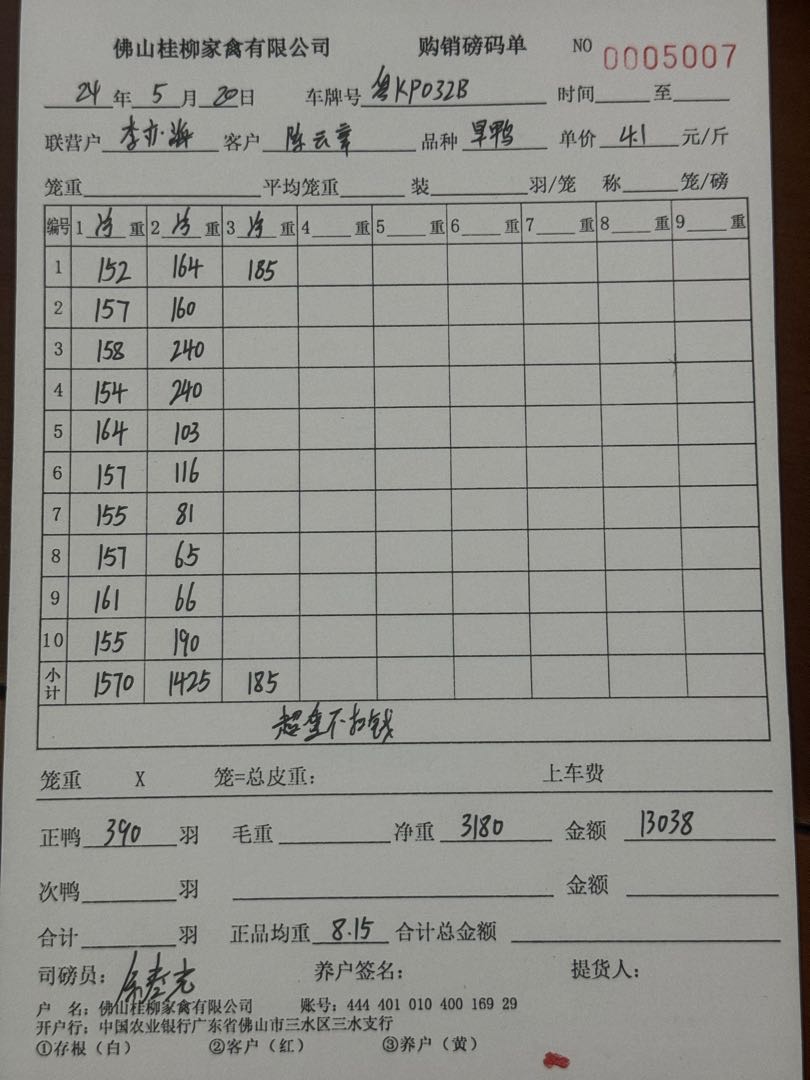 佛山桂柳家禽有限公司 购销磅码单 NO 0005007
24年5月20日 车牌号 粤KP032B 时间 至
联营户 李亦海 客户 陈云章 品种 旱鸭 单价 4.1 元/斤
笼重 平均笼重 装 羽/笼 称 笼/磅
编号 1 净 重 2 净 重 3 净 重 4 重 5 重 6 重 7 重 8 重 9 重
1 152 164 185
2 157 160
3 158 240
4 154 240
5 164 103
6 157 116
7 155 81
8 157 65
9 161 66
10 155 190
小计 1570 1425 185
超重不扣钱
笼重 X 笼=总皮重： 上车费
正鸭 390 羽 毛重 净重 3180 金额 13038
次鸭 羽 金额
合计 羽 正品均重 8.15 合计总金额
司磅员： 养户签名： 提货人：
户 名：佛山桂柳家禽有限公司 账号：444 401 010 400 169 29
开户行：中国农业银行广东省佛山市三水区三水支行
①存根（白） ②客户（红） ③养户（黄）